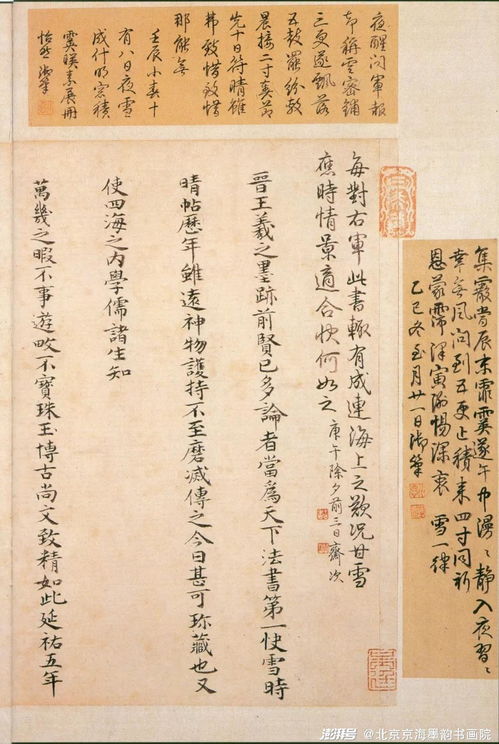 集霰當辰末霏霙遂午中漫〻靜入夜習〻
幸無風問到五更止積来四寸同祈
恩蒙霈澤寅惕深衷 雪一律
乙巳冬至月廿一日御筆
夜醒問軍報
却稱雲密鋪
三更遂飄落
五鼓罷紛敷
晨接二寸奏節
先十日符晴雖
弗致惜致惜
那能無
壬辰小春十
有八日夜雪
成什明窓積
霙暎素展冊
怡然 御筆
每對右軍此書輒有成連海上之歎況甘雪
應時情景適合快何如之 庚午除夕前三日齋次
晉王羲之墨跡前賢已多論者當為天下法書第一快雪時
晴帖歷年雖遠神物護持不至磨滅傳之今日甚可珎藏也又
使四海之内學儒諸生知
萬幾之暇不事遊畋不寶珠玉博古尚文致精如此延祐五年
澎湃号 @北京京海墨韵书画院